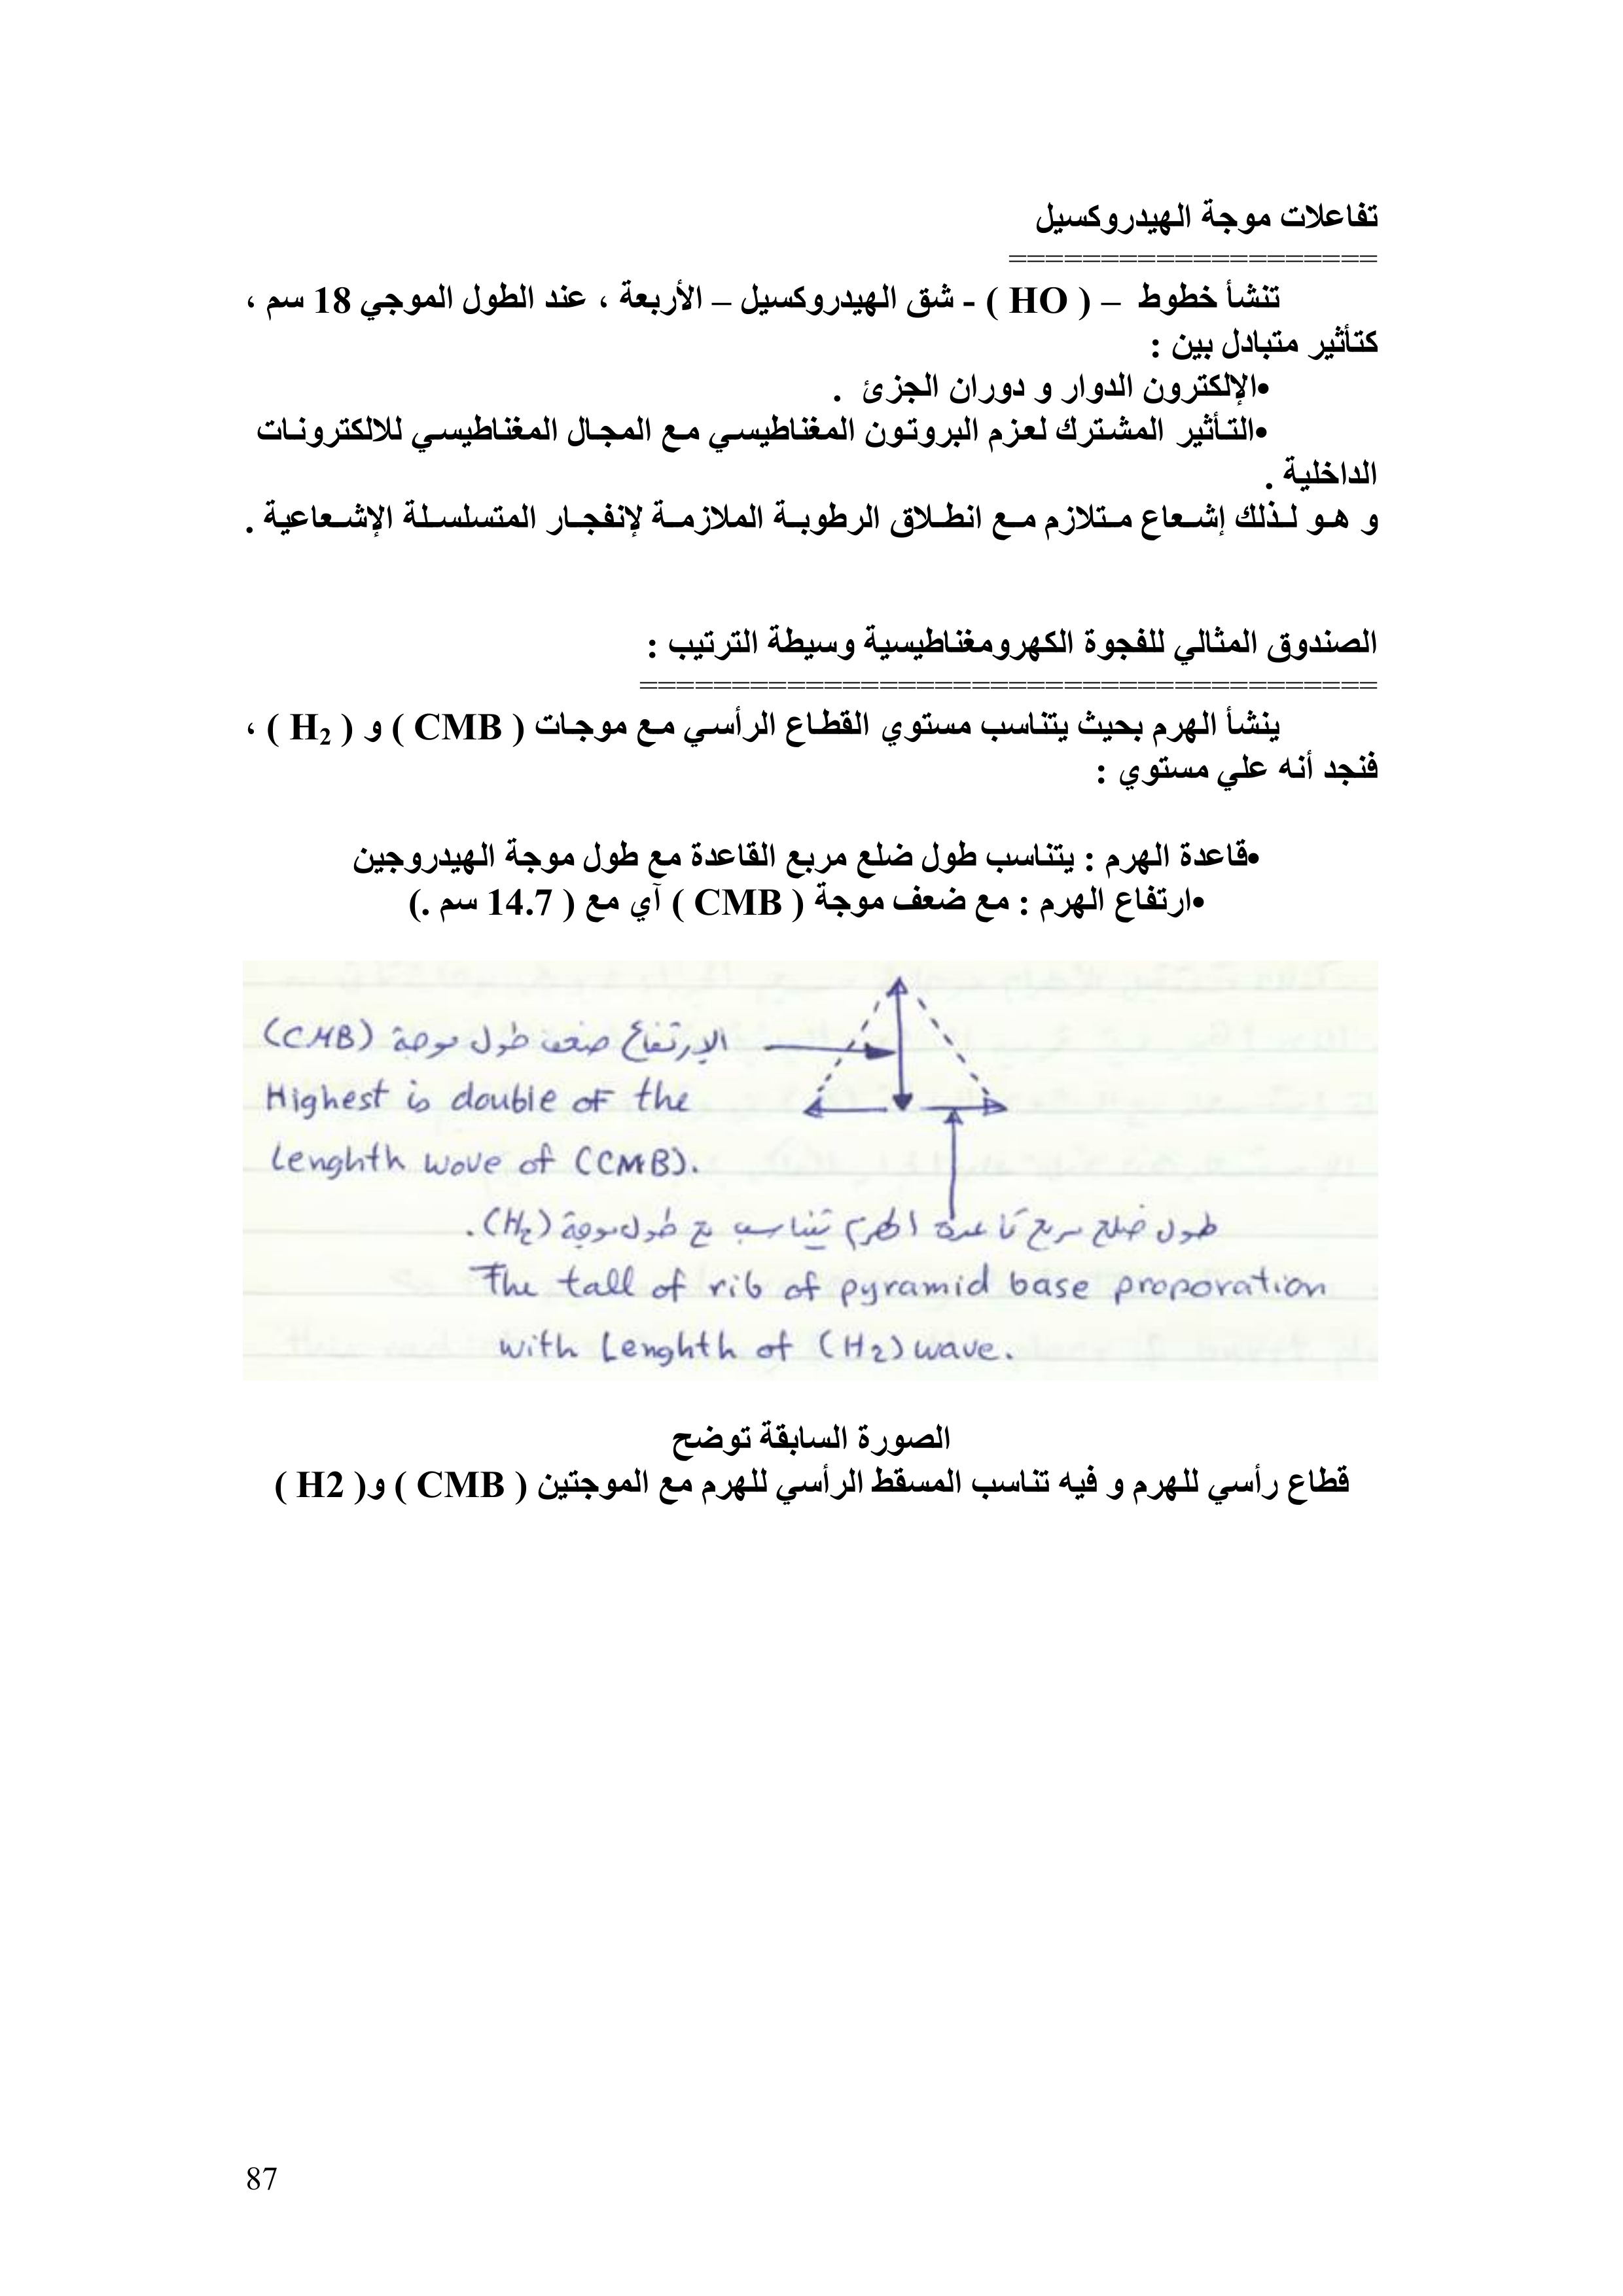 تفاعلات موجة الهيدروكسيل
========================================
تنشأ خطوط – ( HO ) - شق الهيدروكسيل – الأربعة ، عند الطول الموجي 18 سم ،
كتأثير متبادل بين :
•الإلكترون الدوار و دوران الجزئ .
•التأثير المشترك لعزم البروتون المغناطيسي مع المجال المغناطيسي للالكترونات
الداخلية .
و هو لذلك إشعاع متلازم مع انطلاق الرطوبة الملازمة لإنفجار المتسلسلة الإشعاعية .
الصندوق المثالي للفجوة الكهرومغناطيسية وسيطة الترتيب :
========================================
ينشأ الهرم بحيث يتناسب مستوي القطاع الرأسي مع موجات ( CMB ) و ( H₂ ) ،
فنجد أنه علي مستوي :
•قاعدة الهرم : يتناسب طول ضلع مربع القاعدة مع طول موجة الهيدروجين
•ارتفاع الهرم : مع ضعف موجة ( CMB ) آي مع ( 14.7 سم .)
الإرتفاع ضعف طول موجة (CMB)
Highest is double of the
Lenghth wove of (CMB).
طول ضلع مربع قاعدة الهرم تيناسب مع طول موجة (H₂).
The tall of rib of pyramid base proporation
with Lenghth of (H₂) wave.
الصورة السابقة توضح
قطاع رأسي للهرم و فيه تناسب المسقط الرأسي للهرم مع الموجتين ( CMB ) و( H2 )
87